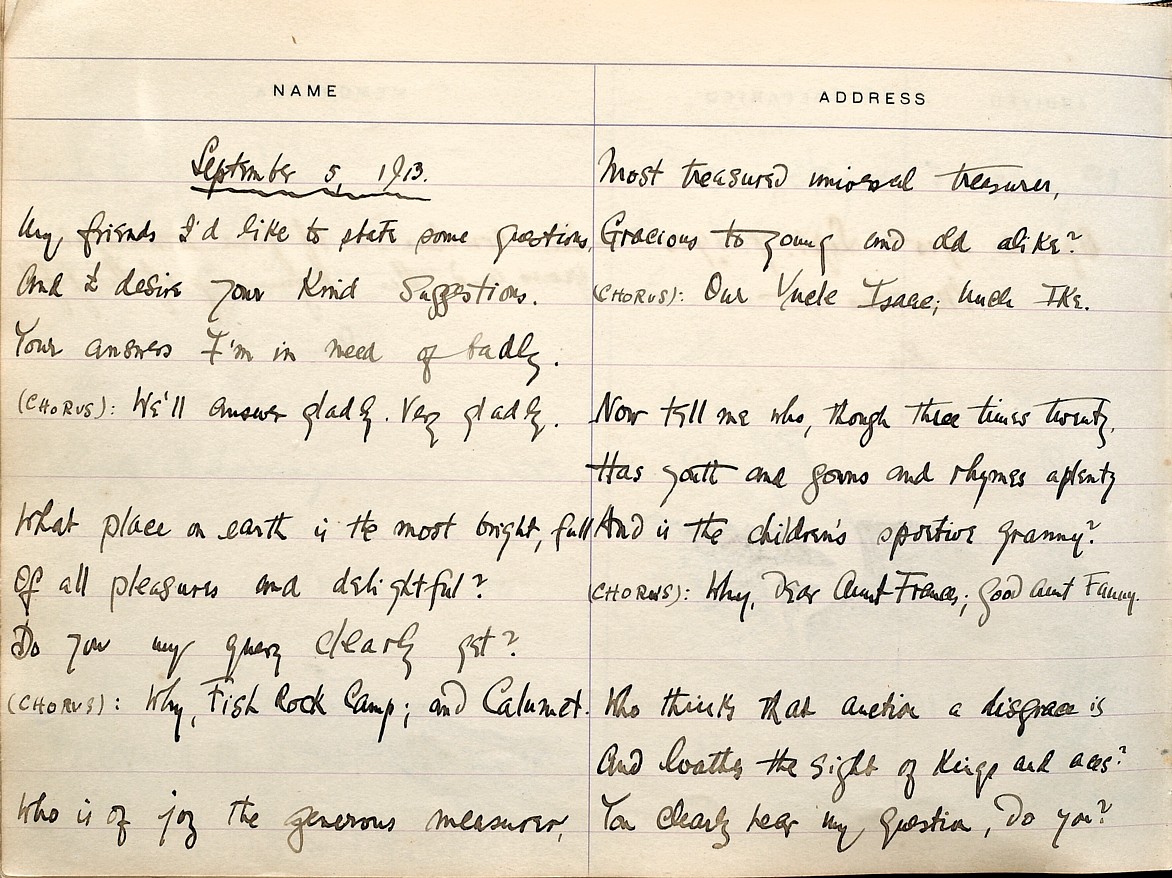 NAME
September 5, 1913.
My friends I'd like to state some questions,
And I desire your Kind Suggestions.
Your answers I'm in need of badly.
(CHORUS): We'll answer gladly. Very gladly.
What place on earth is the most bright, full
Of all pleasures and delightful?
Do you my query clearly get?
(CHORUS): Why, Fish Rock Camp; and Calumet.
Who is of joy the generous measurer,
ADDRESS
Most treasured universal treasurer,
Gracious to young and old alike?
(CHORUS): Our Uncle Isaac; Uncle Ike.
Now tell me who, though three times twenty,
Has youth and gowns and rhymes aplenty
And is the children's sportive granny?
(CHORUS): Why, Dear Aunt Frances; Good aunt Fanny.
Who thinks that auction a disgrace is
And loathes the sight of Kings and aces?
You clearly hear my question, Do you?